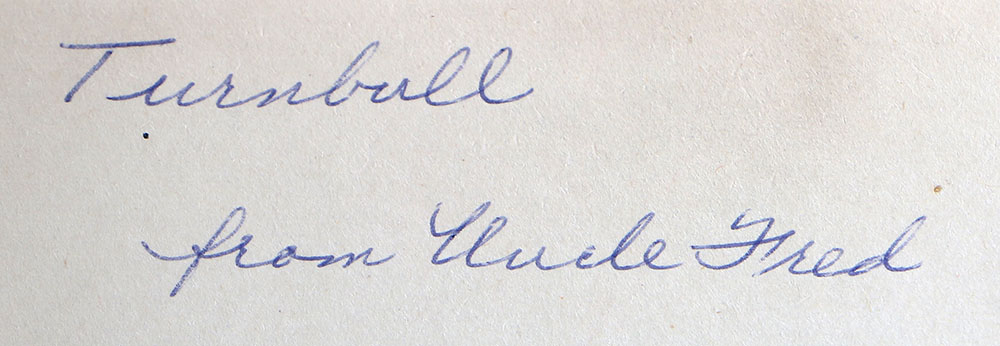 Turnbull
from Uncle Fred